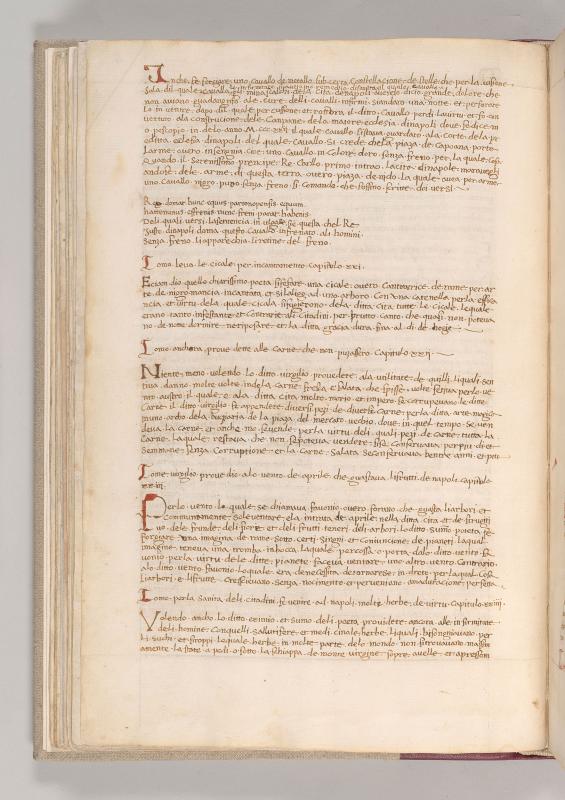 Anche fe forgiare uno cavallo de metallo sub certa Constellacione de stelle che per la visione
sola dil quale cavallo
non aviano guadangno ale cure delli cavalli infirmi siandaro una notte et perforaro
lo in ventre dapo dil quale percussione et roctura il ditto cavallo perdi la virtu et fo con
vertuto ala construcione dele Campane dela maiore ecclesia dinapoli
il quale cavallo si stava guardato ala corte dela pre
ditta ecclesia dinapoli del quale cavallo si crede che la piaza de Capoana porta
Larme overo insegnia cioe uno Cavallo in Colore doro senza freno per la qual cosa
Quando il Serenissimo prencipe Re Carllo primo intrao la cita dinapole
dele arme di questa terra overo piaza de nido La quale avea per arme
uno cavallo nigro puro senza freno si Comando che fossero scritte doi versi
hunc equum
effrenis nunc frem paret habenis
Deli quali versi la sentencia in vulgare se questa chel Re
Juste dinapoli doma questo Cavallo infrenato ali homini
Senza freno li apparechia li retine del freno
Como levo le cicale per incantamento capitolo xxi
Eciam dio quello chiarissimo poeta si fe fare una cicale overo Cantatrice de rame per ar
te de nigromancia incantata et si la lego ad uno arboro Con una catenella per la
encia et virtu dela quale cicala si fugierono dela ditta cita tutte le Cicale le quale
erano tanto infestante et Contrarie ali Citadini per brutto Canto che quasi non poteva
no de notte dormire ne riposare et la ditta gracia dura fina al di de hogie
Como anchora provedette alle Carne che non putassero Capitulo xxii
Niente meno volendo lo ditto virgilio provedere ala utilitate de quilli li quali sen
tiva danno molte volte indela carne frescha et salata che spisse volte fetiva per lo ve
nto austro il quale e ala ditta cita molto nocio et impero se corrupevano le ditte
Carne il ditto virgilio fe appendere diversi pezi de diverse Carne per la ditta arte magica
in uno ordo dela buzaria de la piaza del mercato vechio dove in quel tempo se ven
deva la carne et anche mo se vende per la virtu deli quali pezi de carne tutta la
Carne la quale restava che non se poteva vendere se Conservava per piu di et
semmane senza corruptione et la Carne salata se conservava bentre anni et piu
Come virgilio provedio alo vento de aprile che guastava li frutti de napoli capitolo
xxiii
Per lo vento lo quale se chiamava favonio overo fortano che guasta li arbori et
comunamente sole ventare ela intrata de aprile nella ditta cita et destrutti
vo dele frunde deli fiore et deli frutti teneri deli arbori lo ditto sumo poeta fe
forgiare una imagina de rame sotto certi singni et coniuncione de pianeti la qual
imagine teneva una tromba in bocca la quale percossa o porta dalo ditto vento fa
vonio per la virtu dele ditte pianete faceva ventare uno altro vento contrario
alo ditto vento favonio lo quale era de necessita de tornarese in direto per la qual cosa
li arbori et li frutte cressievano senza nocimento et perveniano a maduracione perfetta
Come per la sanita deli citadini fe venire ad napoli molte herbe de virtu Capitulo xxiiii
Volendo ancho lo ditto eximio et sumo deli poeta providere ancora alle infirmitate
deli homine Con quelli salutifere et medicinale herbe li quali bisongniavano per
li suchi et siroppi le quale herbe in molte parte delo mondo non si trovavano maxi
amente la state a pedi o sotto la schiappa de monte virgine sopre avelle et apressem